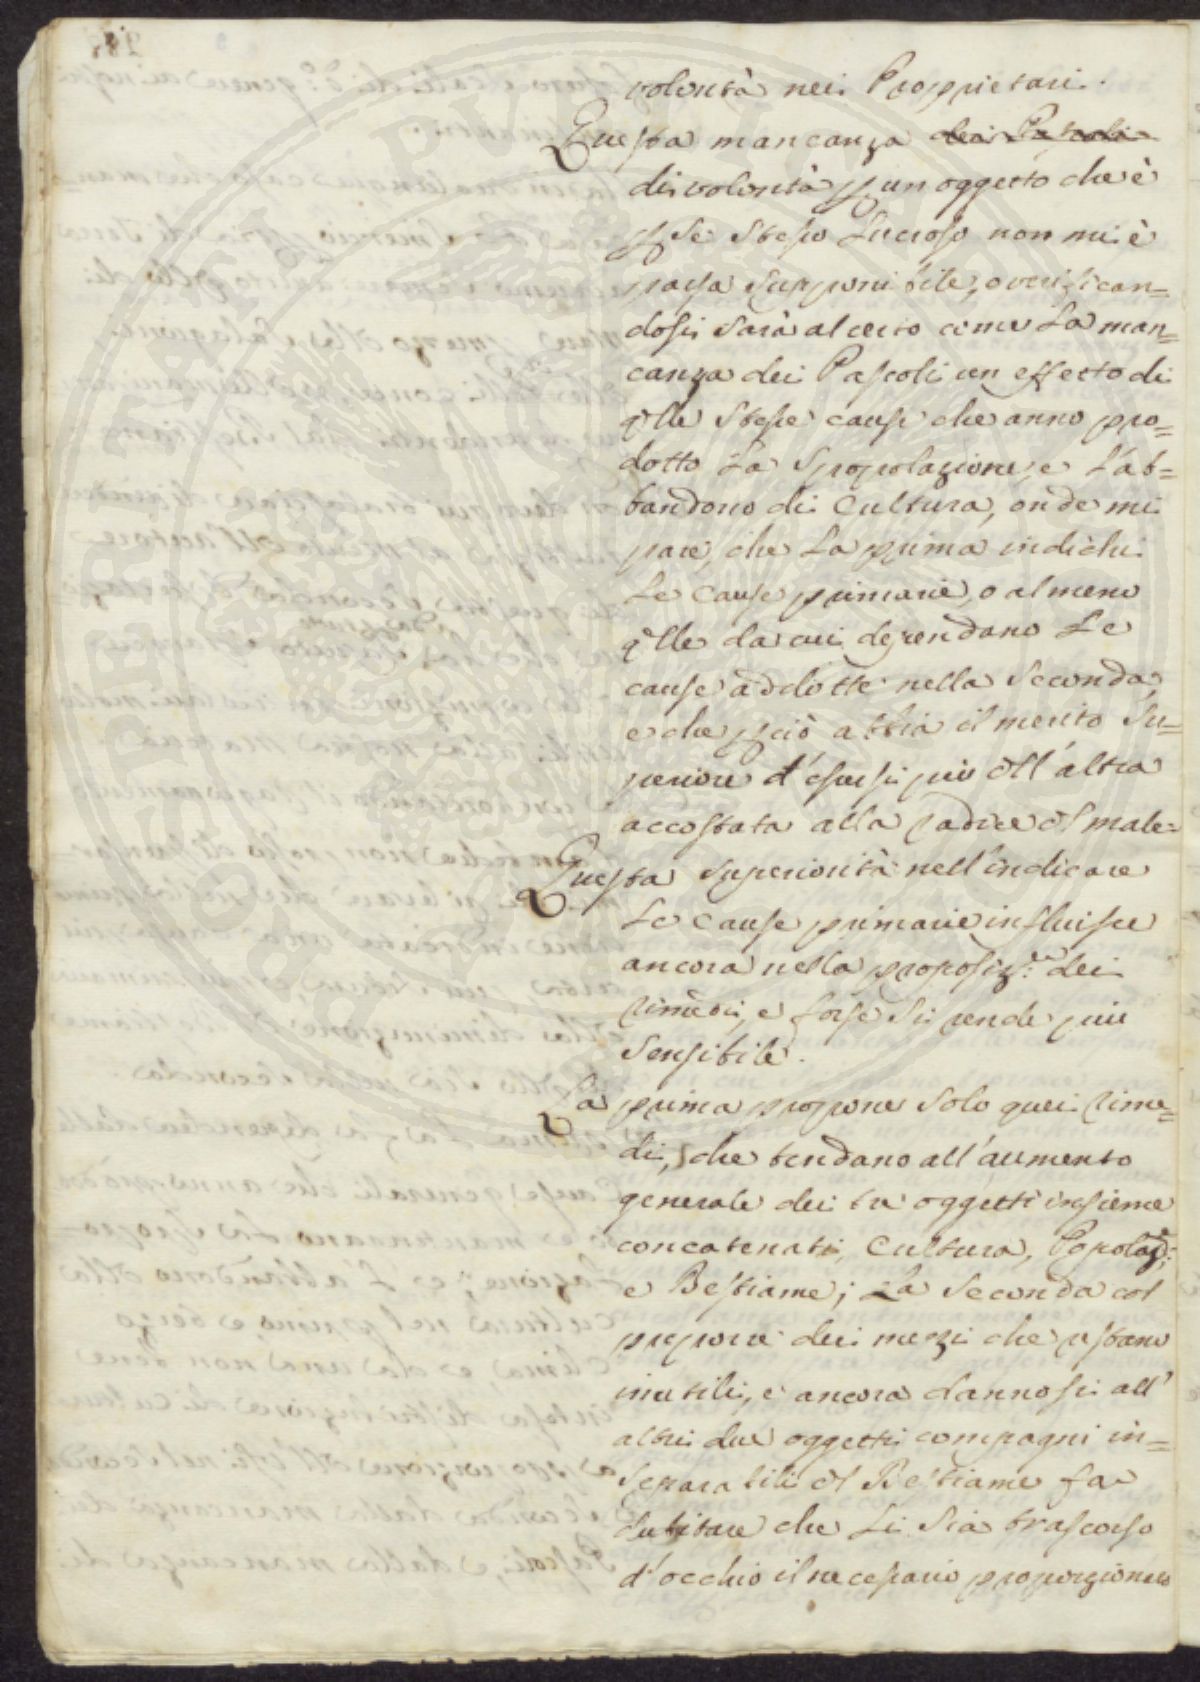 volontà nei Proprietari.
Questa mancanza dei Pascoli
di volontà p un oggetto che è
p se stesso lucroso non mi è
parsa supponibile, o verifican=
dosi sarà al certo come la man=
canza dei Pascoli un effetto di
qlle stesse cause che anno pro=
dotto la spopolazione, e l'ab=
bandono di Cultura, onde mi
pare, che la prima indichi
le cause primarie, o almeno
qlle da cui dependano le
cause addotte nella seconda,
e che pciò abbia il merito su=
periore d'essersi più dll'altra
accostata alla radice dl male=
Questa superiorità nell'indicare
le cause primarie influisce
ancora nella proposiz:ne dei
rimedi, e forse si rende più
sensibile.
La prima propone solo quei rime=
di, che tendano all'aumento
generale dei tre oggetti insieme
concatenati, Cultura, Popolaz:ne
e Bestiame; La seconda col
proporre dei mezzi che restano
inutili, e ancora dannosi all'
altri due oggetti compagni in=
separabili dl Bestiame fa
dubitare che li sia trascorso
d'occhio il necessario proporzionato